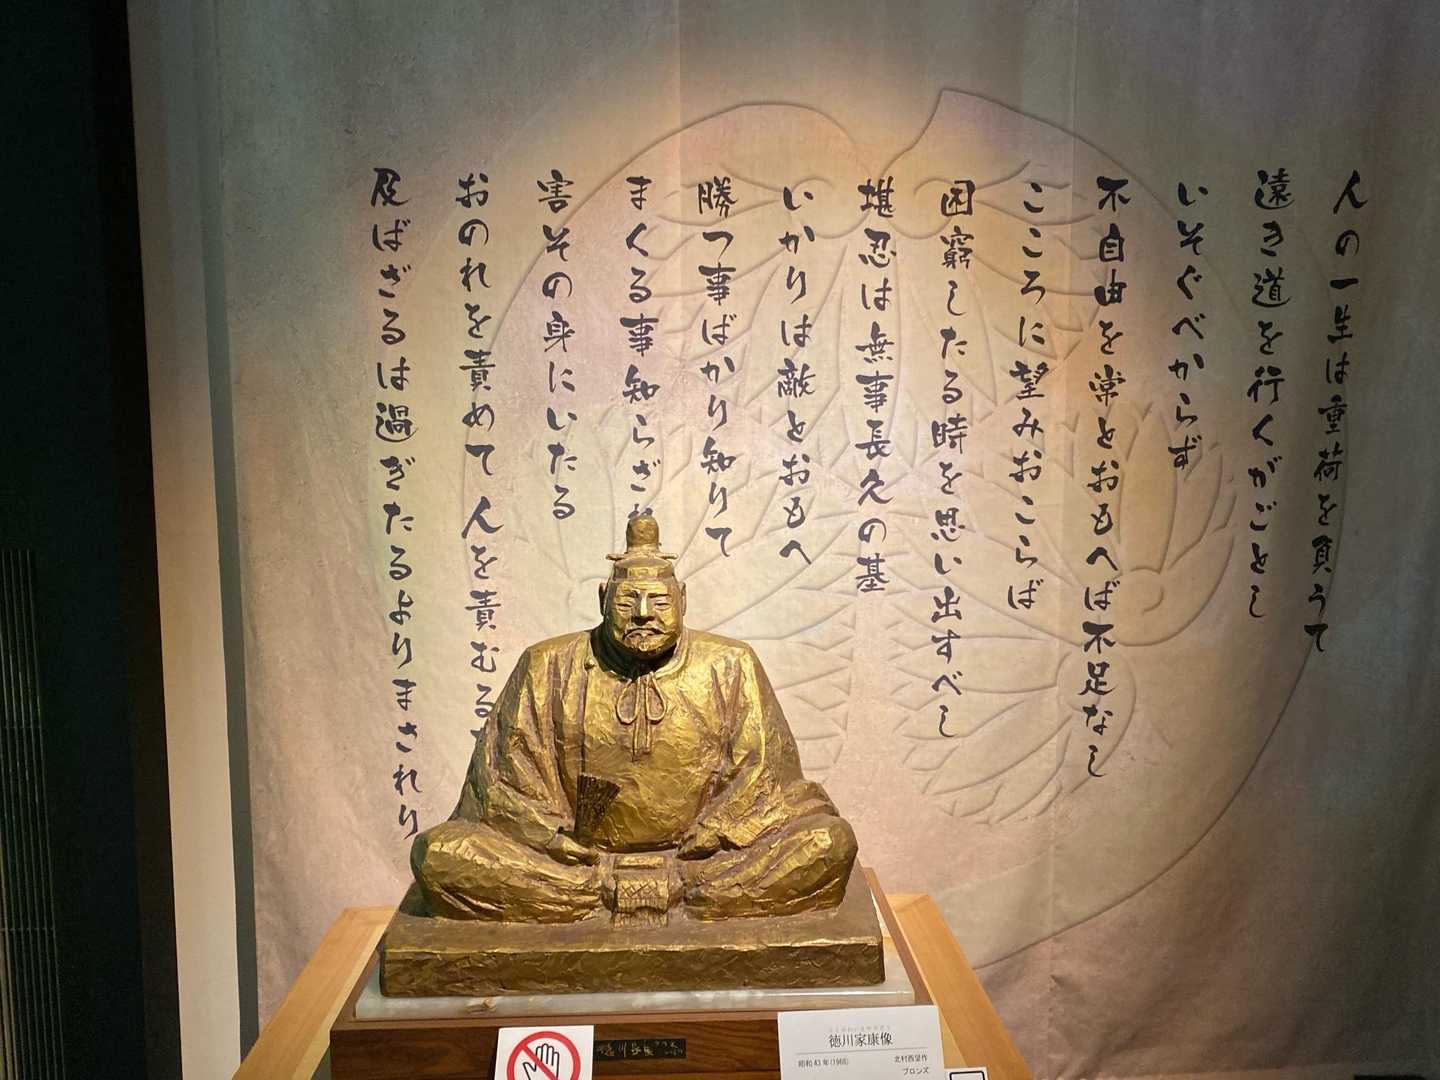 人の一生は重荷を負うて
遠き道を行くがごとし
いそぐべからず
不自由を常とおもへば不足なし
こころに望みおこらば
困窮したる時を思い出すべし
堪忍は無事長久の基
いかりは敵とおもへ
勝つ事ばかり知りて
まくる事知らざれ
害その身にいたる
おのれを責めて人を責むる
及ばざるは過ぎたるよりまされり
徳川家康像
昭和43年(1968)
北村西望作
ブロンズ